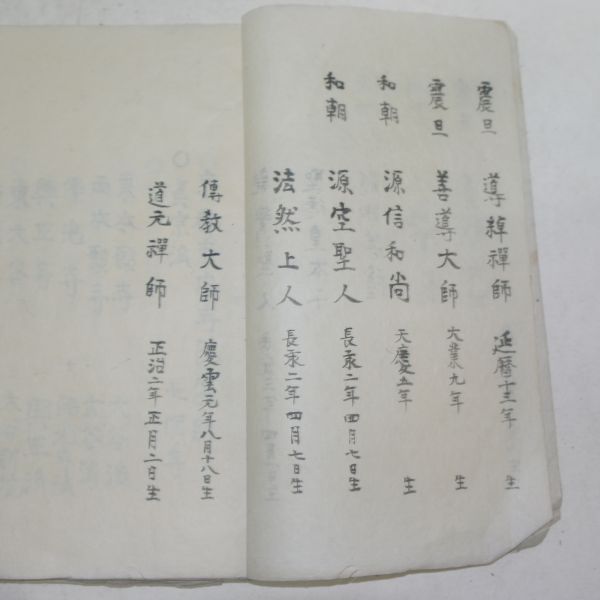 震旦 導綽禪師 延曆十三年 生
震旦 善導大師 大業九年 生
和朝 源信和尚 天慶五年 生
和朝 源空聖人 長承二年四月七日生
法然上人 長承二年四月七日生
傳敎大師 慶雲元年八月十八日生
道元禪師 正治二年正月二日生